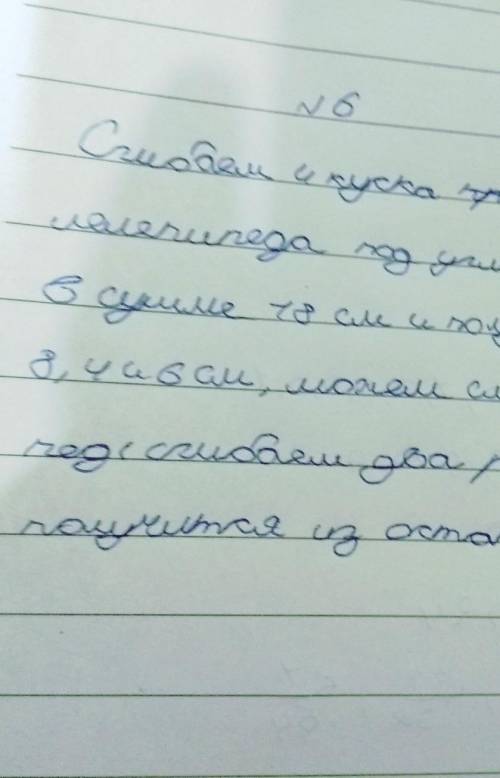 № 6
Сгибаем 4 куска пр
лелепипеда под угл
В сумме 18 см и пол
8, 4 и 6 см, можем сл
пед, сгибаем два р
получится из оста